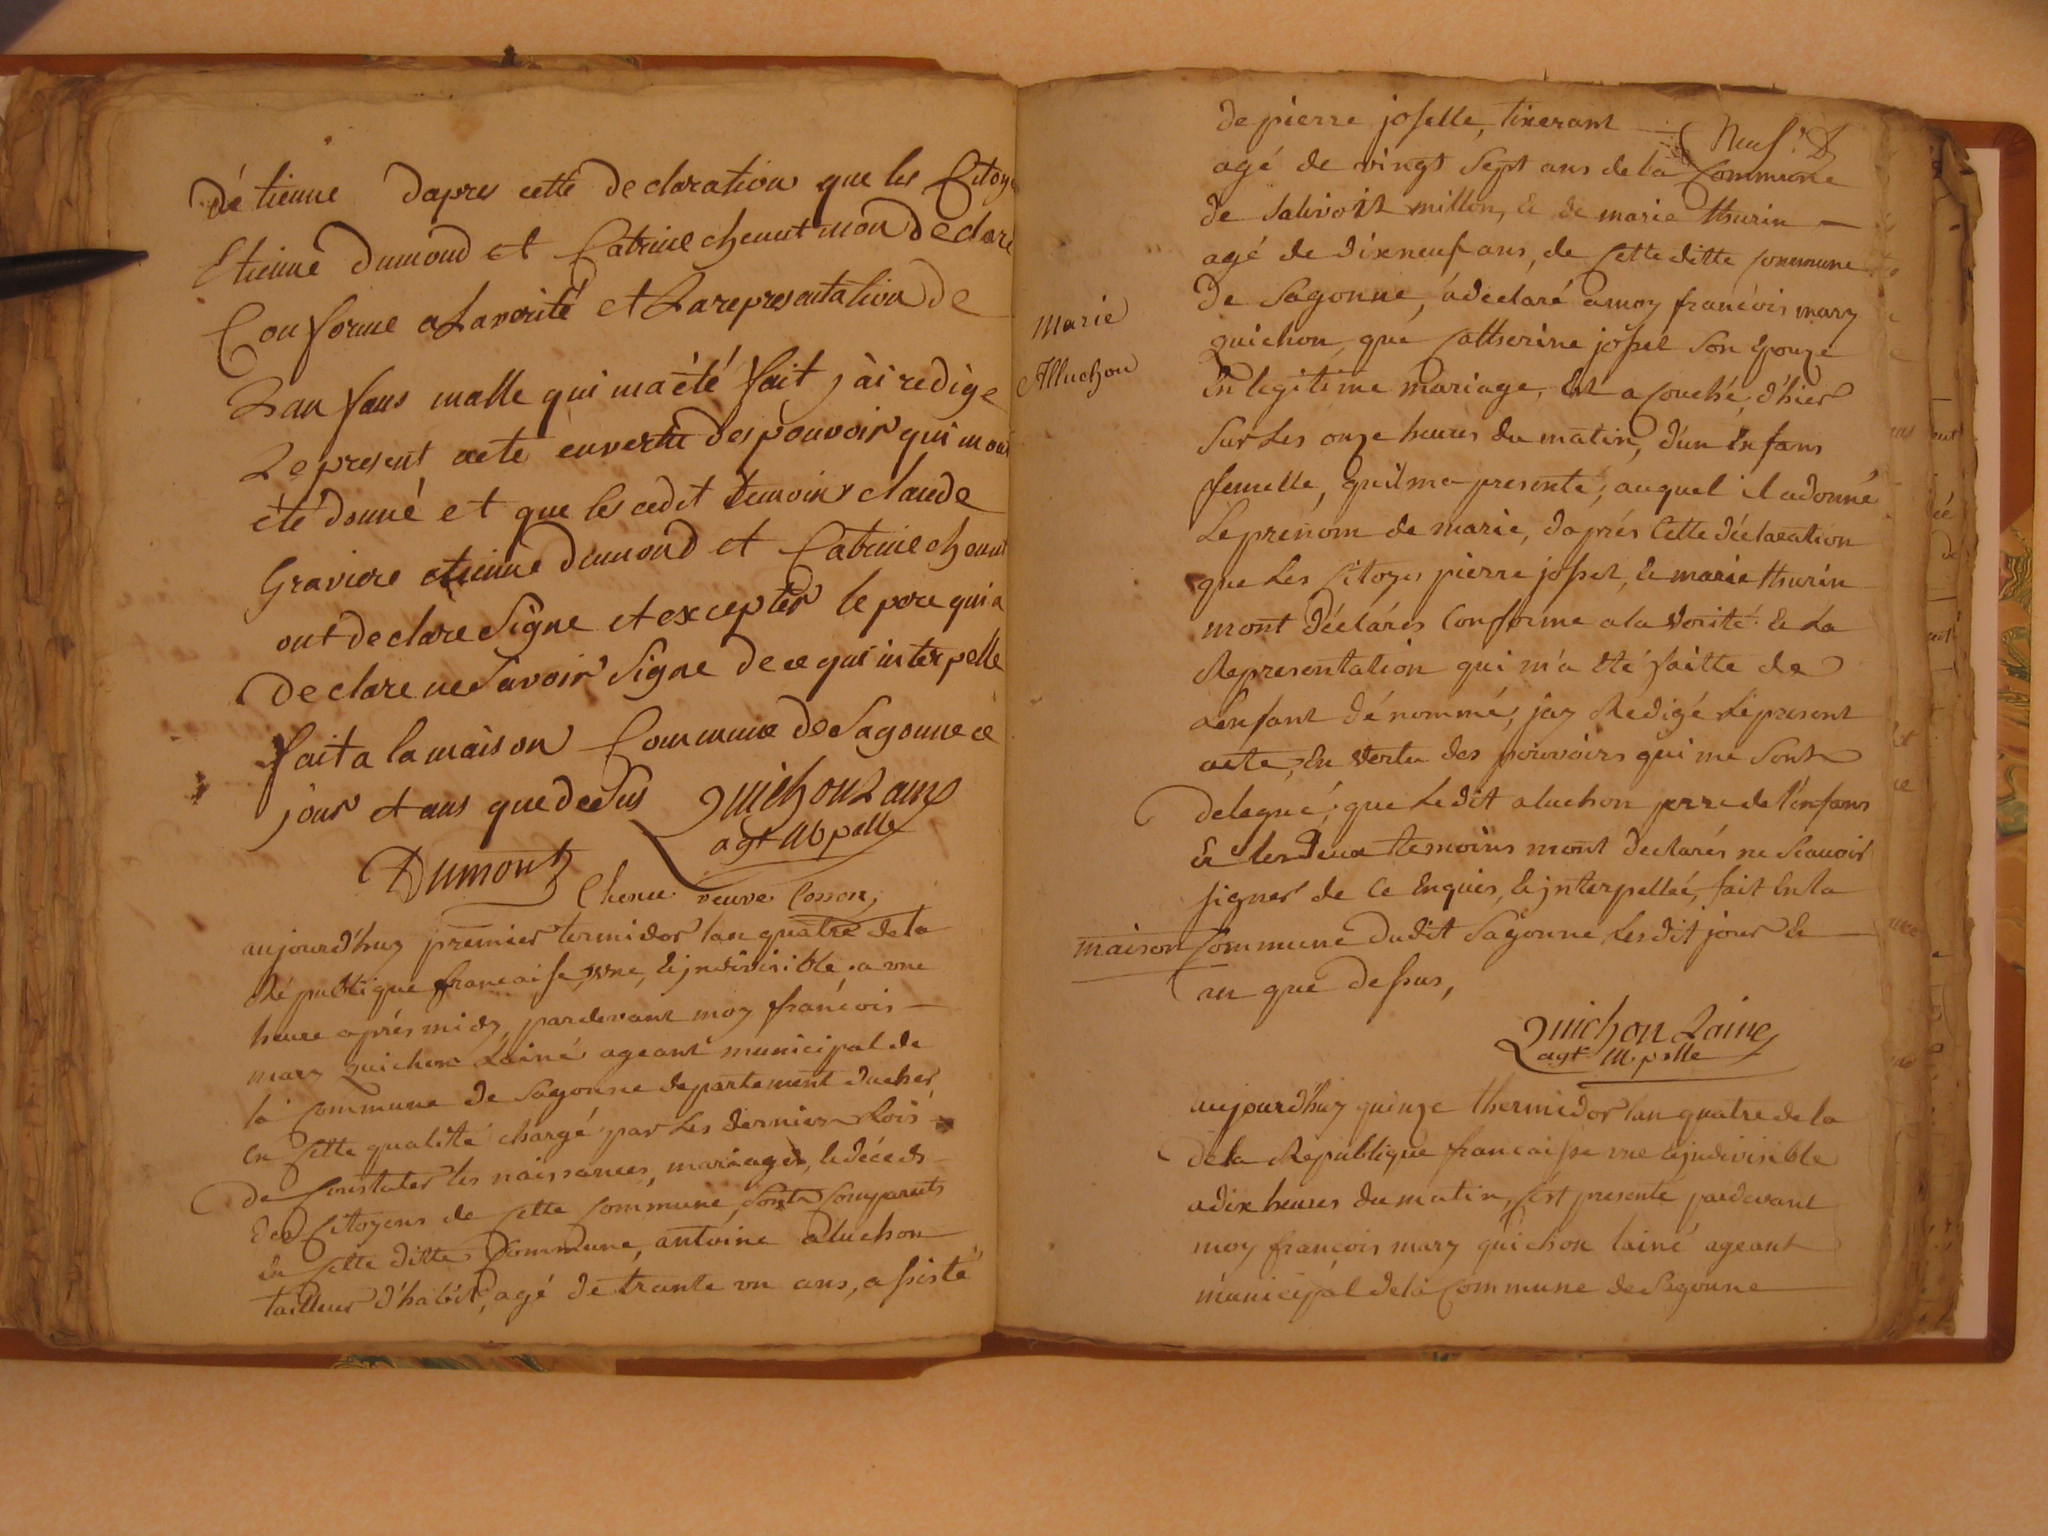 détienne dapres cette declaration que les Citoye
Etienne dumond et Catrine chenut mon declare
Conforme a Lavorité et Larepresentation de
Lan fans malle qui ma été fait j'ai redige
Le present acte envertu des pouvoir qui mon
été donné et que les cedit temoins claude
Graviere etienne dumond et Catrine chenut
ont declare Signe et excepter le pere qui a
declare ne Savoir Signe de ce qui interpelle
fait a la maison Commune de Sagonne ce
jour et ans que deSus Quichon Laine
agt Mpalle
Dumont
Chenu veuve Cosson
aujourd'huy premier termidor lan quatre de la
Républtique francaise, vne, & jndivisible a vne
heure aprés midy, pardevant moy francois
mary quichon Lainé ageant municipal de
la Commune de Sagonne departement ducher
en Cette qualité chargé par Les dernier Lois
de Constater les naissances, mariages, & décéds
des Citoyens de Cette Commune, Sont Comparuts
en Cette ditte Commune, antoine aluchon
tailleur d'habit, agé de trante vn ans, assisté
de pierre joselle, tixerant
Neuf. D
agé de vingt Sept ans de la Commune
de Salivoit millon, & de marie thurin
agé de dixneuf ans, de Cette ditte Commune
de Sagonne, a declaré a moy francois mary
quichon, que Catherine josset Son Epouze
En legitime mariage, Est a Couché, d'hier
Sur Les onze heures du matin, d'un Enfans
femelle, qu'il ma presenté, auquel il a donné
Le prenom de marie, daprés Cette déclaration
que Les Citoyes pierre josset, & marie thurin
mont déclarés Conforme a la vorité & La
Representation qui m'a été faitte de
Lenfant dénommé, jay Redigé Le present
acte, En vertu des pouvoirs qui me Sont
delegué; que Ledit aluchon perre de l'enfans
& les deux temoins mont declarés ne Scauoir
signer de Ce Enquis, & jnterpelleé, fait En la
maison Commune dudit Sagonne Lesdit jour &
an que dessus,
Marie
Alluchon
Quichon Laine
agt Mpalle
aujourd'huy quinze thermidor lan quatre de la
de la République francaisse vne & jndivisible
a dix heures du matin, Cest presenté pardevant
moy francois mary quichon lainé ageant
municipal de la Commune de Sagonne